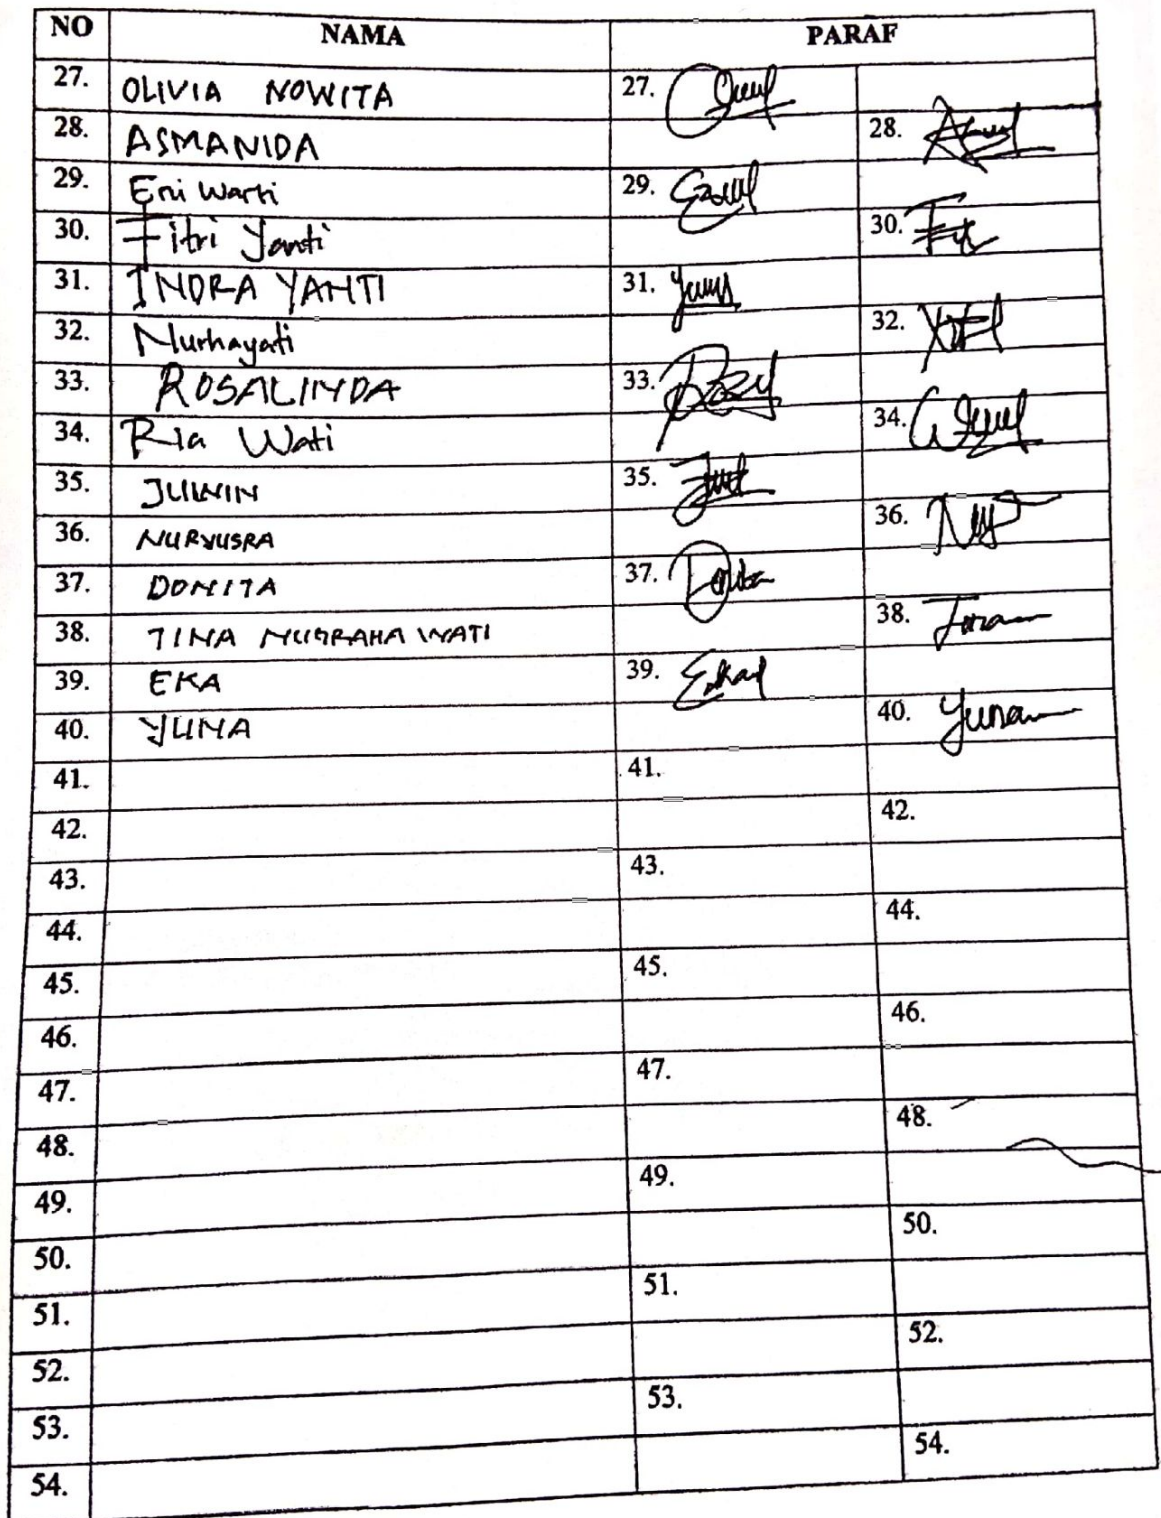 NO NAMA PARAF
27. OLIVIA NOWITA 27.
28. ASMANIDA 28.
29. Eni Warti 29.
30. Fitri Yanti 30.
31. INDRA YANTI 31.
32. Nurhayati 32.
33. ROSALINDA 33.
34. Ria Wati 34.
35. JUWIN 35.
36. NURYUSRA 36.
37. DONITA 37.
38. TINA NUGRAHA WATI 38.
39. EKA 39.
40. YUNA 40.
41. 41.
42. 42.
43. 43.
44. 44.
45. 45.
46. 46.
47. 47.
48. 48.
49. 49.
50. 50.
51. 51.
52. 52.
53. 53.
54. 54.